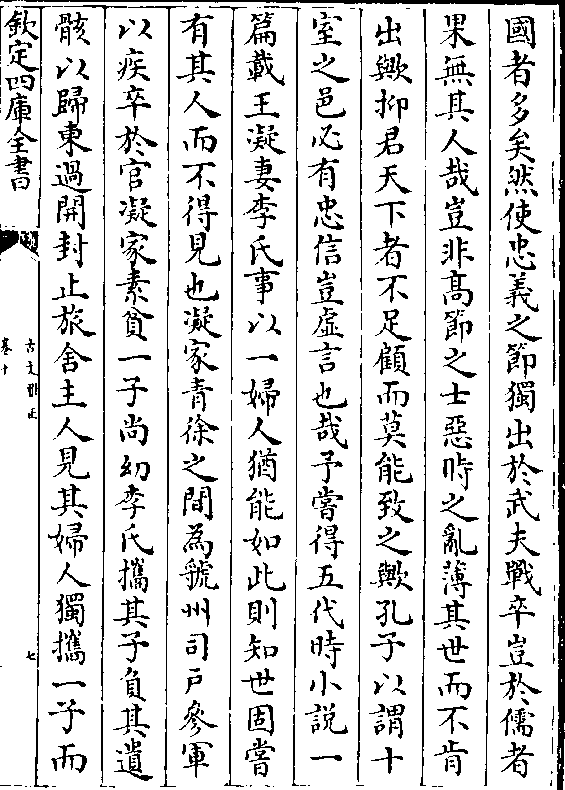 國者多矣然使忠義之節獨出於武夫戰卒豈於儒者
果無其人哉豈非髙節之士惡時之亂薄其世而不肯
出歟抑君天下者不足顧而莫能致之歟孔子以謂十
室之邑必有忠信豈虚言也哉予嘗得五代時小説一
篇載王凝妻李氏事以一婦人猶能如此則知世固嘗
有其人而不得見也凝家青徐之間為虢州司戸參軍
以疾卒於官凝家素貧一子尚幼李氏攜其子負其遺
骸以歸東過開封止旅舍主人見其婦人獨攜一子而
欽定四庫全書
古文雅正
卷十
七